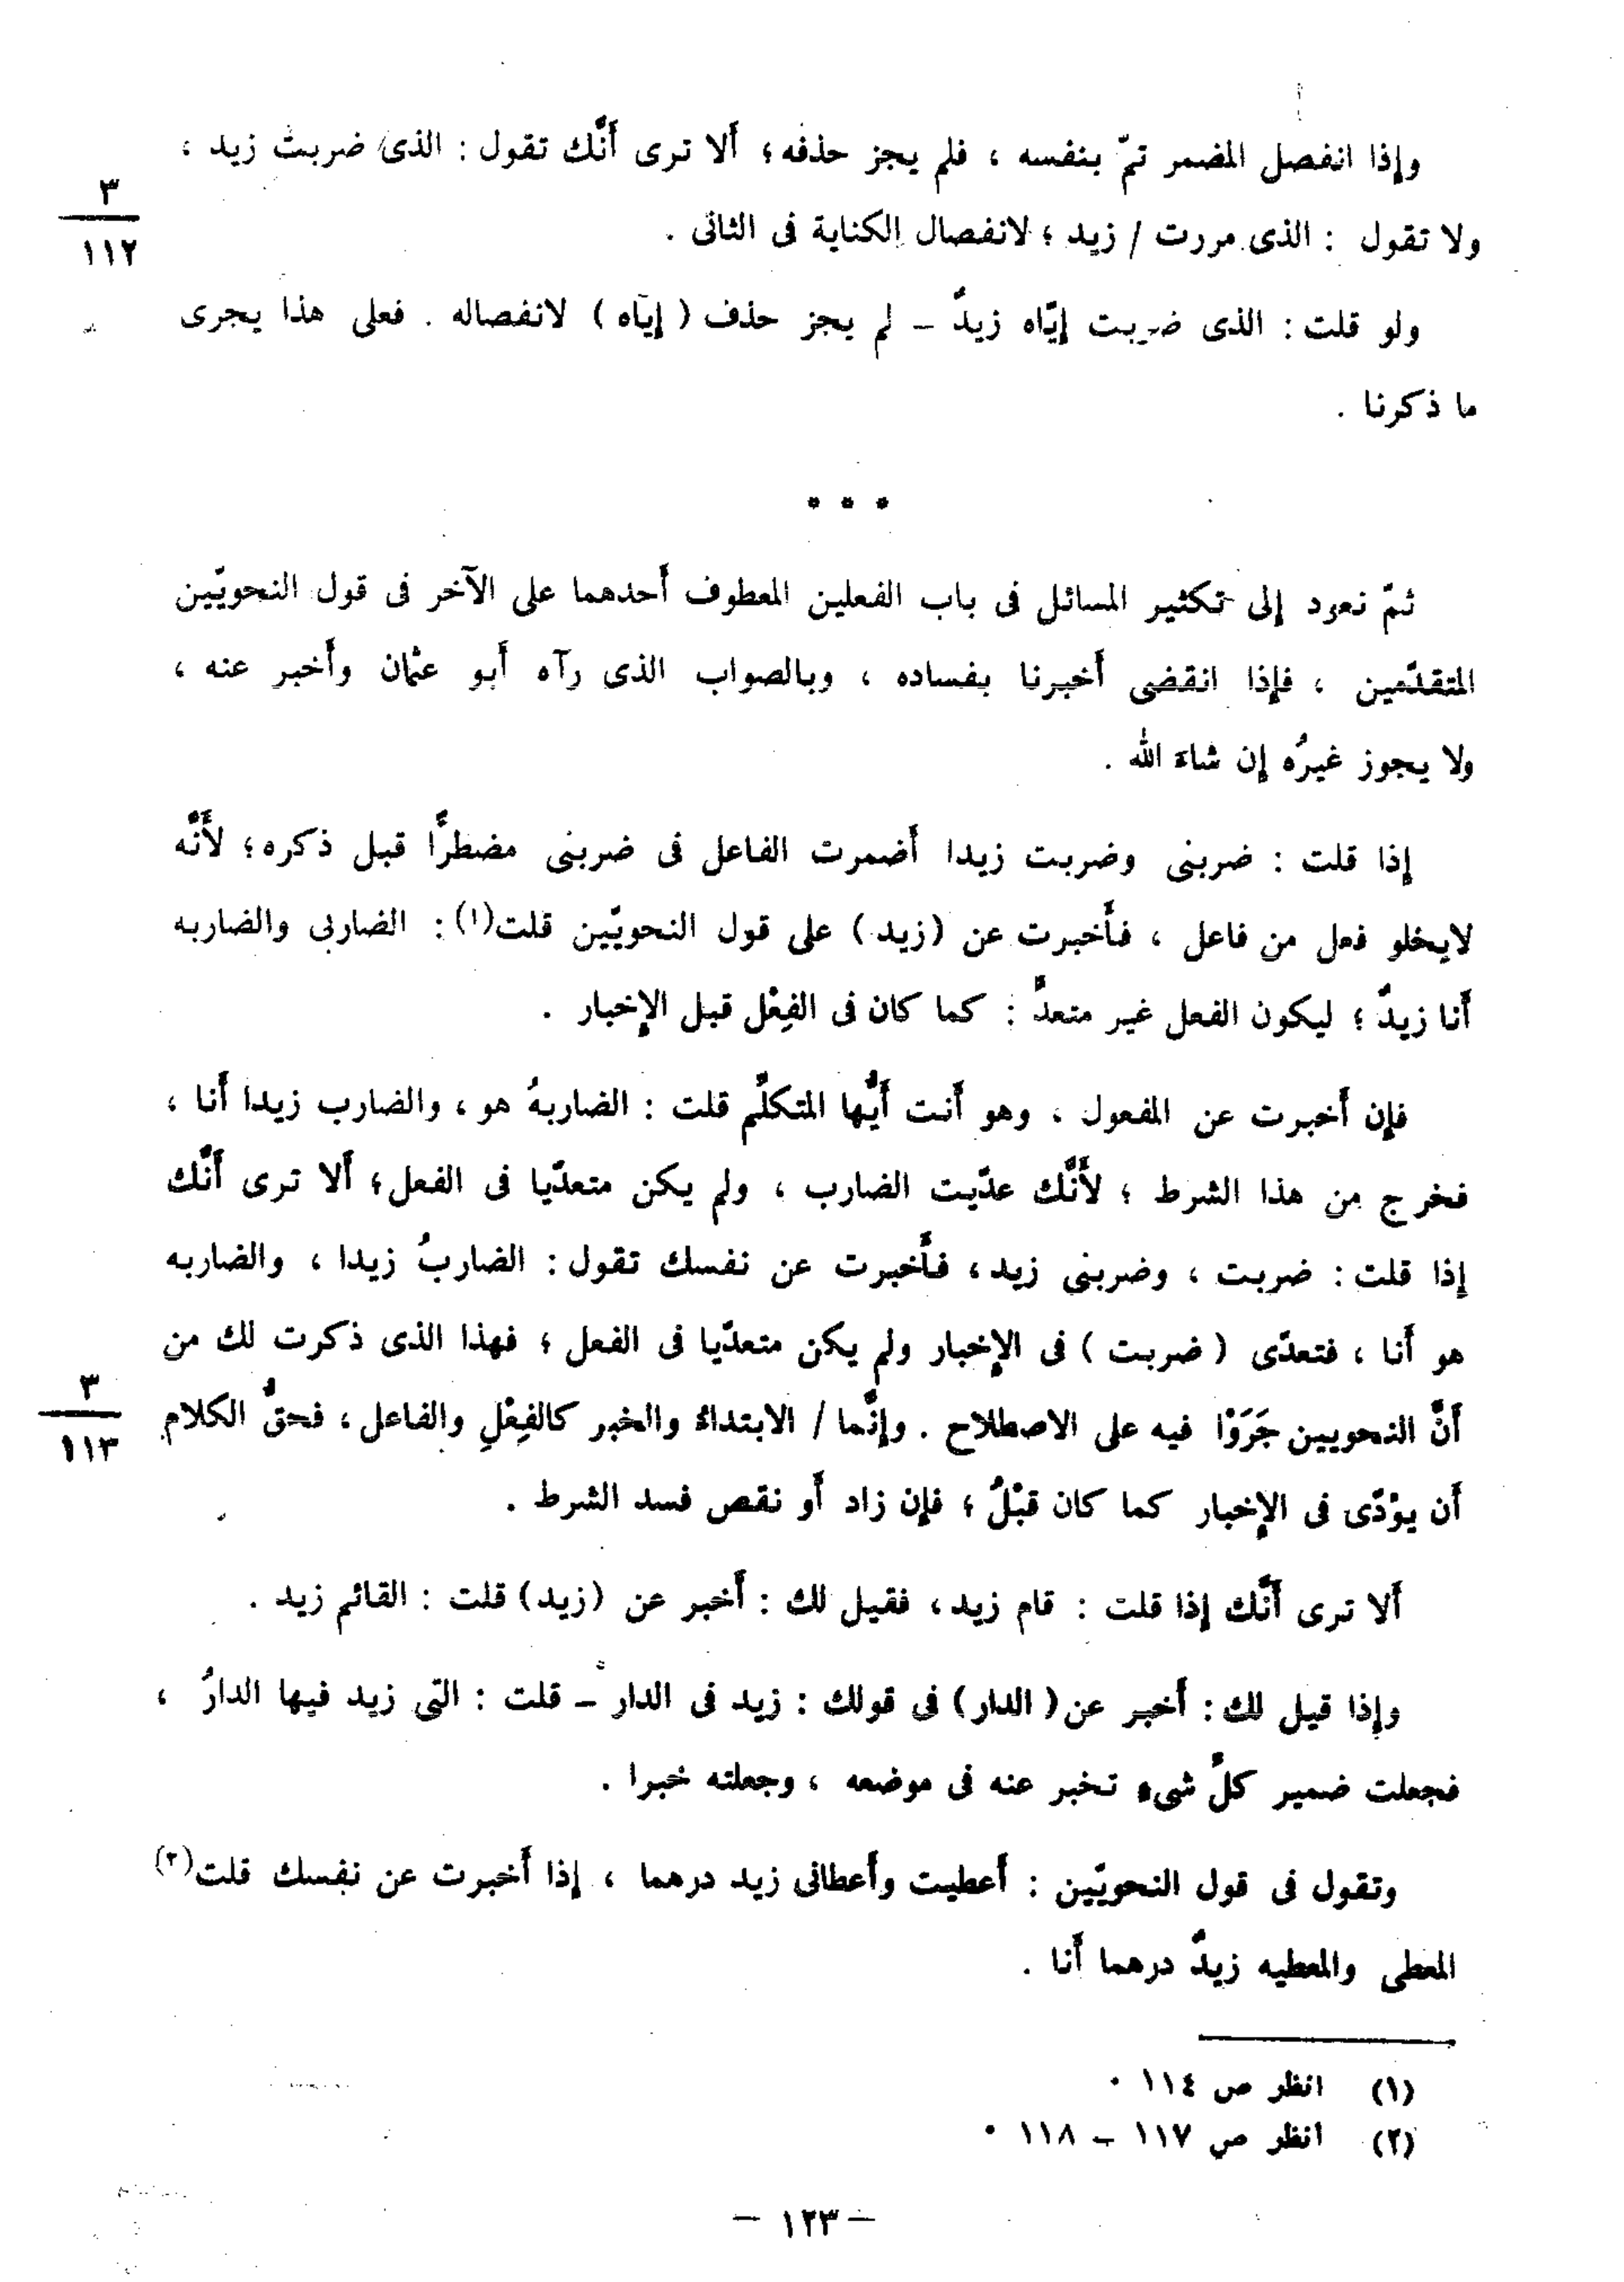 وإذا انفصل المضمر تمّ بنفسه ، فلم يجز حذفه ؛ أَلا ترى أَنَّك تقول : الذى ضربتُ زيد ،
٣
١١٢
ولا تقول : الذى مررت / زيد ؛ لانفصال الكناية فى الثانى .
ولو قلت : الذى ضربت إيّاه زيدٌ – لم يجز حذف ( إيّاه ) لانفصاله . فعلى هذا يجرى
ما ذكرنا .
* * *
ثمّ نعود إلى تكثير المسائل فى باب الفعلين المعطوف أَحدهما على الآخر فى قول النحويّين
المتقدّمين ، فإذا انقضى أَخبرنا بفساده ، وبالصواب الذى رآه أَبو عثمان وأَخبر عنه ،
ولا يجوز غيرُه إن شاءَ الله .
إذا قلت : ضربنى وضربت زيدا أَضمرت الفاعل فى ضربنى مضطرًّا قبل ذكره ؛ لأَنَّه
لايخلو فعل من فاعل ، فأَخبرت عن (زيد) على قول النحويّين قلت(١) : الضاربى والضاربه
أَنا زيدٌ ؛ ليكون الفعل غير متعدٍّ : كما كان فى الفِعْل قبل الإخبار .
فإن أَخبرت عن المفعول ، وهو أَنت أَيُّها المتكلِّم قلت : الضاربهُ هو ، والضارب زيدا أَنا ،
فخرج من هذا الشرط ؛ لأَنَّك عدّيت الضارب ، ولم يكن متعدّيا فى الفعل ؛ أَلا ترى أَنَّك
إذا قلت : ضربت ، وضربنى زيد ، فأَخبرت عن نفسك تقول : الضاربُ زيدا ، والضاربه
هو أَنا ، فتعدّى ( ضربت ) فى الإخبار ولم يكن متعدّيا فى الفعل ؛ فهذا الذى ذكرت لك من
٣
١١٣
أَنَّ النحويين جَرَوْا فيه على الاصطلاح . وإنَّما / الابتداءُ والخبر كالفِعْلِ والفاعل ، فحقُّ الكلام
أَن يؤدّى فى الإخبار كما كان قبْلُ ؛ فإن زاد أَو نقص فسد الشرط .
أَلا ترى أَنَّك إذا قلت : قام زيد ، فقيل لك : أَخبر عن (زيد) قلت : القائم زيد .
وإذا قيل لك : أَخبر عن ( الدار ) فى قولك : زيد فى الدار – قلت : التى زيد فيها الدارُ ،
فجعلت ضمير كلِّ شىءٍ تخبر عنه فى موضعه ، وجعلته خبرا .
وتقول فى قول النحويّين : أَعطيت وأَعطانى زيد درهما ، إذا أَخبرت عن نفسك قلت(٢)
المعطى والمعطيه زيدٌ درهما أَنا .
(١) انظر ص ١١٤ ٠
(٢) انظر ص ١١٧ – ١١٨ ٠
– ١٢٣ –